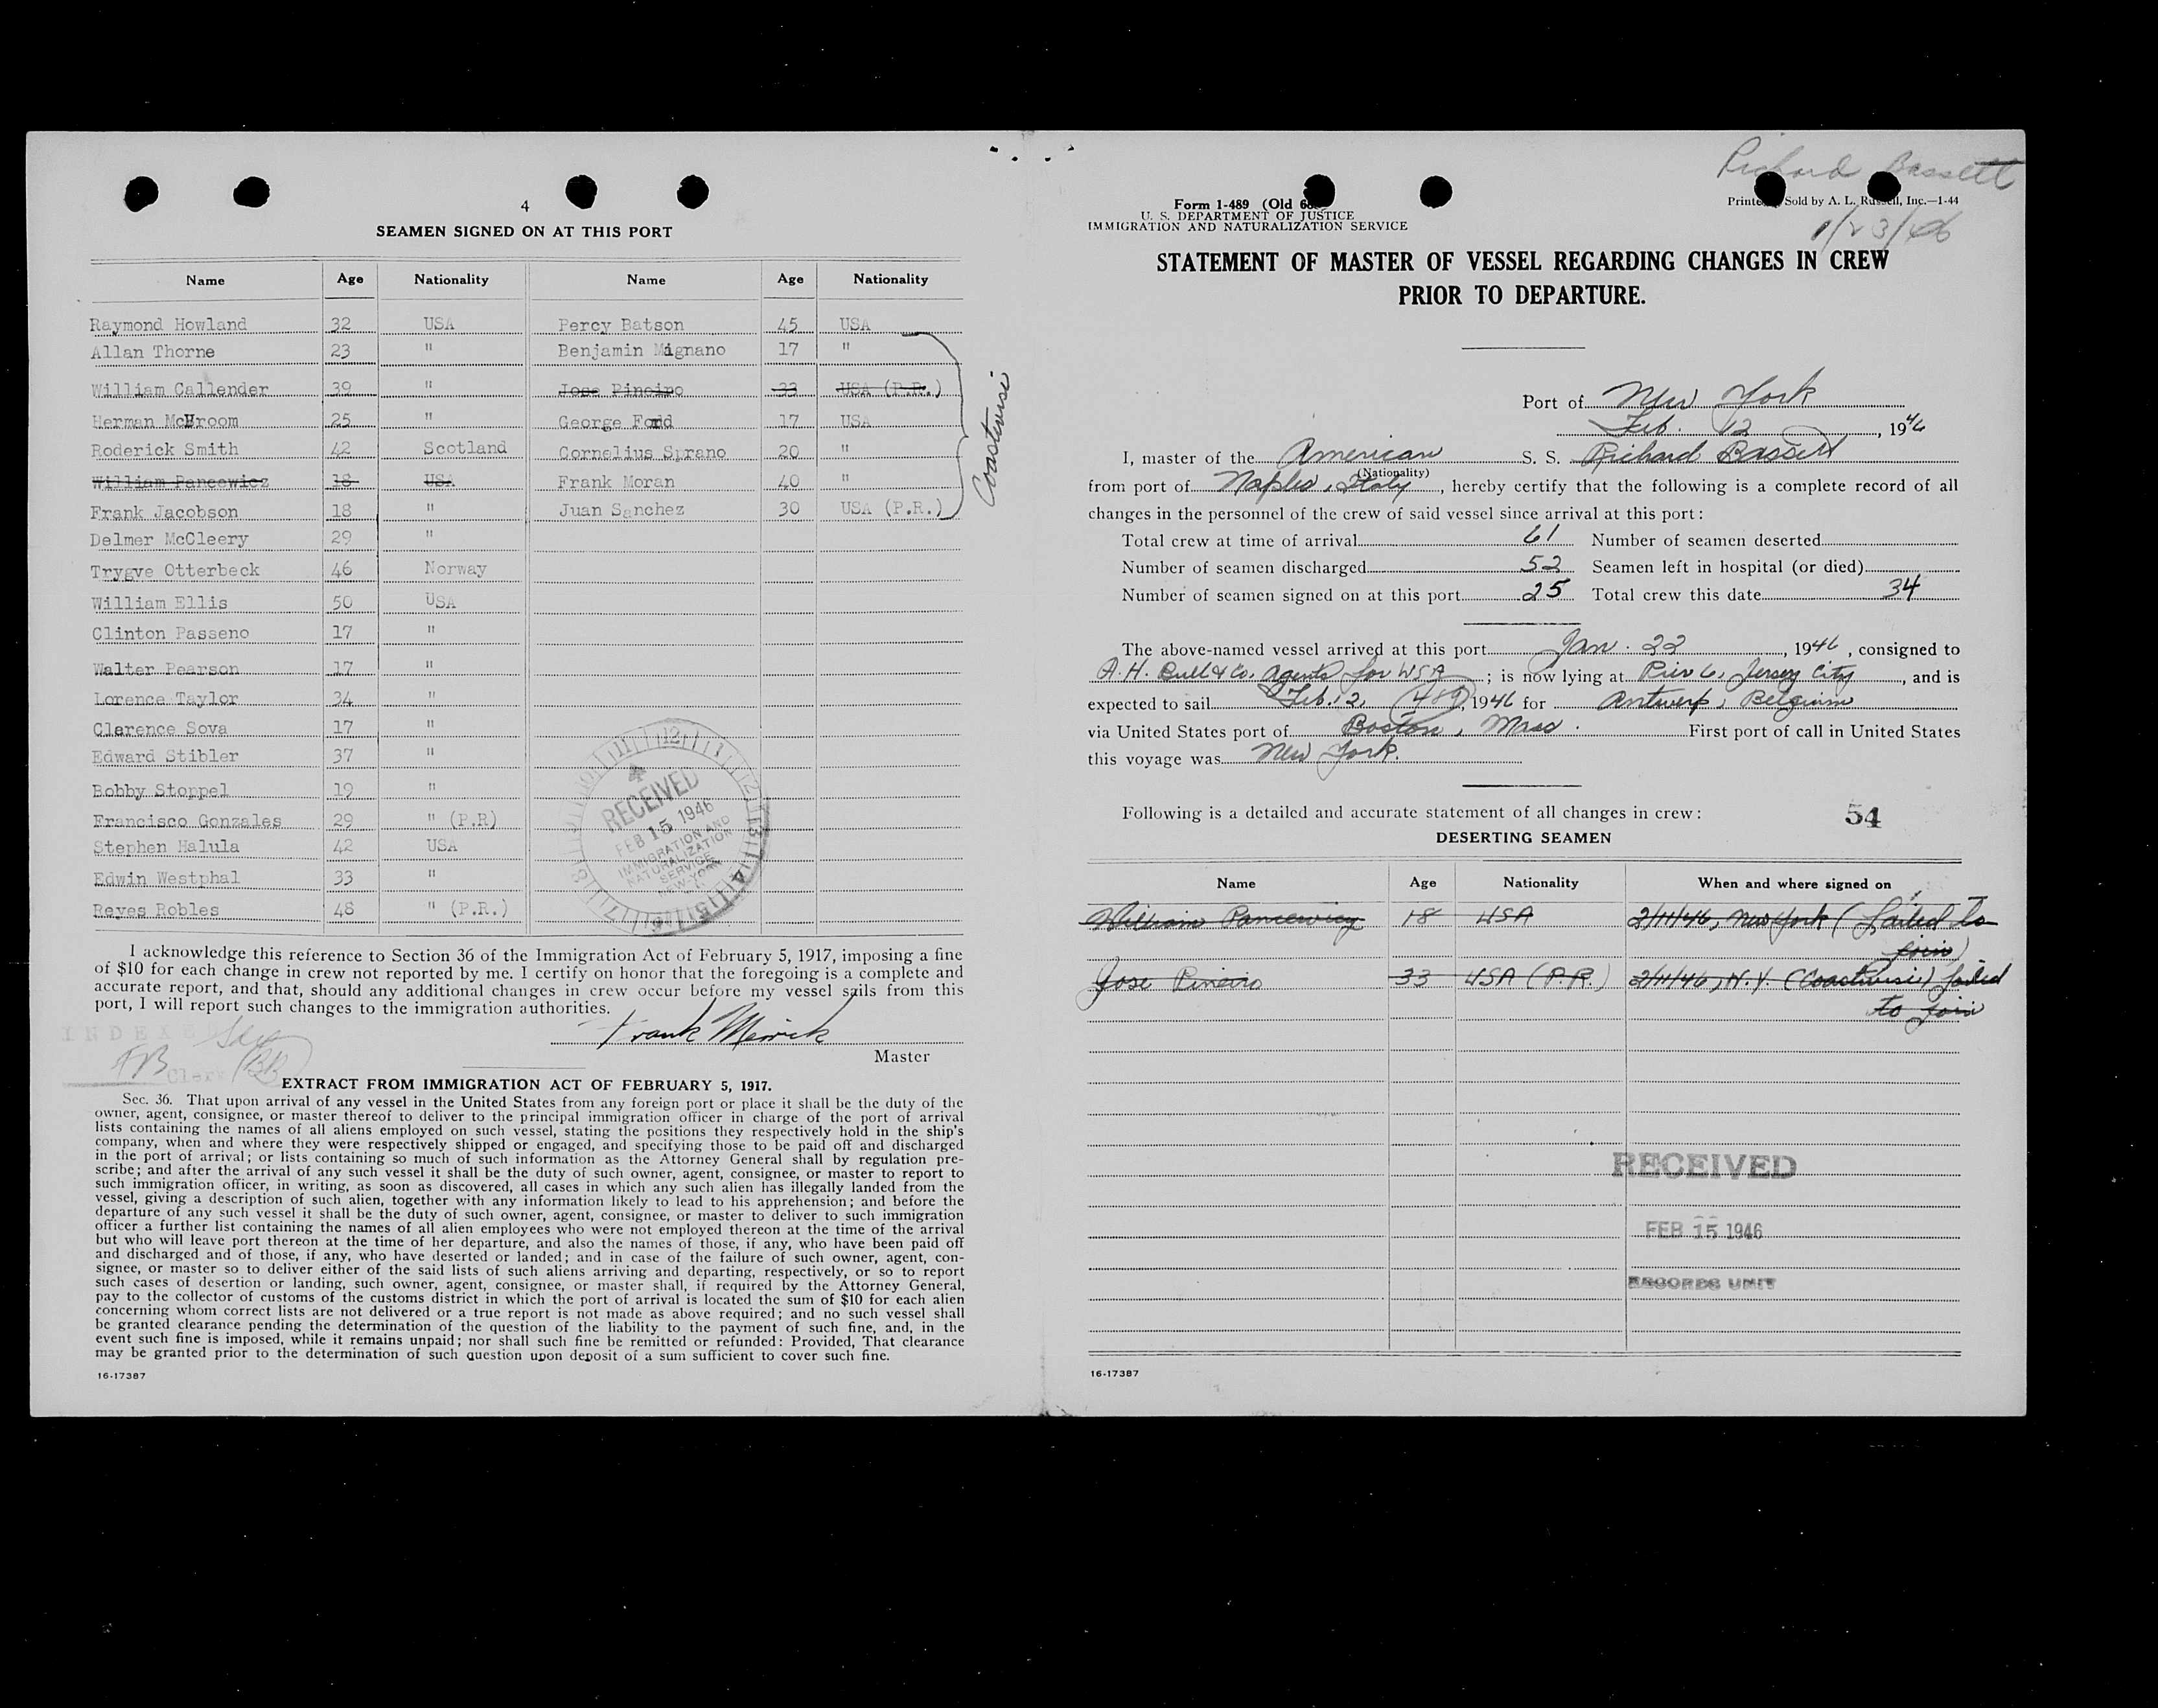 4
SEAMEN SIGNED ON AT THIS PORT
Name Age Nationality Name Age Nationality
Raymond Howland 32 USA Percy Batson 45 USA
Allan Thorne 23 " Benjamin Mignano 17 "
William Callender 39 " Jose Pineiro 33 USA (P.R.)
Herman McBroom 25 " George Fodd 17 USA
Roderick Smith 42 Scotland Cornelius Sprano 20 "
William Pancewicz 18 USA Frank Moran 40 "
Frank Jacobson 18 " Juan Sanchez 30 USA (P.R.)
Delmer McCleery 29 "
Trygve Otterbeck 46 Norway
William Ellis 50 USA
Clinton Passeno 17 "
Walter Pearson 17 "
Lorence Taylor 34 "
Clarence Sova 17 "
Edward Stibler 37 "
Bobby Stoppel 19 "
Francisco Gonzales 29 " (P.R)
Stephen Halula 42 USA
Edwin Westphal 33 "
Reyes Robles 48 " (P.R.)
Coastwise
RECEIVED
FEB 15 1946
IMMIGRATION AND
NATURALIZATION
SERVICE
NEW YORK
I acknowledge this reference to Section 36 of the Immigration Act of February 5, 1917, imposing a fine
of $10 for each change in crew not reported by me. I certify on honor that the foregoing is a complete and
accurate report, and that, should any additional changes in crew occur before my vessel sails from this
port, I will report such changes to the immigration authorities.
INDEXED
Frank Merrick
Master
FB Clerk
EXTRACT FROM IMMIGRATION ACT OF FEBRUARY 5, 1917.
Sec. 36. That upon arrival of any vessel in the United States from any foreign port or place it shall be the duty of the
owner, agent, consignee, or master thereof to deliver to the principal immigration officer in charge of the port of arrival
lists containing the names of all aliens employed on such vessel, stating the positions they respectively hold in the ship's
company, when and where they were respectively shipped or engaged, and specifying those to be paid off and discharged
in the port of arrival; or lists containing so much of such information as the Attorney General shall by regulation pre-
scribe; and after the arrival of any such vessel it shall be the duty of such owner, agent, consignee, or master to report to
such immigration officer, in writing, as soon as discovered, all cases in which any such alien has illegally landed from the
vessel, giving a description of such alien, together with any information likely to lead to his apprehension; and before the
departure of any such vessel it shall be the duty of such owner, agent, consignee, or master to deliver to such immigration
officer a further list containing the names of all alien employees who were not employed thereon at the time of the arrival
but who will leave port thereon at the time of her departure, and also the names of those, if any, who have been paid off
and discharged and of those, if any, who have deserted or landed; and in case of the failure of such owner, agent, con-
signee, or master so to deliver either of the said lists of such aliens arriving and departing, respectively, or so to report
such cases of desertion or landing, such owner, agent, consignee, or master shall, if required by the Attorney General,
pay to the collector of customs of the customs district in which the port of arrival is located the sum of $10 for each alien
concerning whom correct lists are not delivered or a true report is not made as above required; and no such vessel shall
be granted clearance pending the determination of the question of the liability to the payment of such fine, and, in the
event such fine is imposed, while it remains unpaid; nor shall such fine be remitted or refunded: Provided, That clearance
may be granted prior to the determination of such question upon deposit of a sum sufficient to cover such fine.
16-17387
Richard Bassett
1/23/46
Form 1-489 (Old
U. S. DEPARTMENT OF JUSTICE
IMMIGRATION AND NATURALIZATION SERVICE
Sold by A. L. Russell, Inc.—1-44
STATEMENT OF MASTER OF VESSEL REGARDING CHANGES IN CREW
PRIOR TO DEPARTURE.
Port of New York
Feb. 12, 1946
I, master of the American S. S. Richard Bassett
(Nationality)
from port of Naples, Italy, hereby certify that the following is a complete record of all
changes in the personnel of the crew of said vessel since arrival at this port:
Total crew at time of arrival 61 Number of seamen deserted
Number of seamen discharged 52 Seamen left in hospital (or died)
Number of seamen signed on at this port 25 Total crew this date 34
The above-named vessel arrived at this port Jan. 22, 1946, consigned to
A.H. Bull & Co, Agents for WSA; is now lying at Pier 6, Jersey City, and is
expected to sail Feb. 12, (489) 1946 for Antwerp, Belgium
via United States port of Boston, Mass. First port of call in United States
this voyage was New York.
Following is a detailed and accurate statement of all changes in crew:
54
DESERTING SEAMEN
Name Age Nationality When and where signed on
William Pancewicz 18 USA 2/11/46, New York (failed to
join)
Jose Pineiro 33 USA (P.R.) 2/11/46, N.Y. (Coastwise) failed
to join
RECEIVED
FEB 15 1946
RECORDS UNIT
16-17387